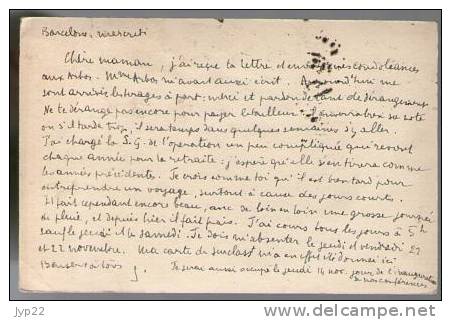 Barcelone, mercredi
Chère maman, j'ai reçu ta lettre et envoyé mes condoléances
aux Arbos. Mme Arbos m'avait aussi écrit. Aujourd'hui me
sont arrivés les tirages à part: merci et pardon de tant de dérangement.
Ne te dérange pas encore pour payer le tailleur: il enverra bien sa note
ou s'il tarde trop, il sera temps dans quelques semaines d'y aller.
J'ai chargé la S.G. de l'opération un peu compliquée que revient
chaque année pour la retraite: j'espère qu'elle s'en tirera comme
les années précédentes. Je crois comme toi qu'il est bien tard pour
entreprendre un voyage, surtout à cause des jours courts.
Il fait cependant encore beau, avec de loin en loin une grosse journée
de pluie, et depuis hier il fait frais. J'ai cours tous les jours à 5h
sauf le jeudi et le samedi. Je dois m'absenter le jeudi et vendredi 21
et 22 novembre. Ma carte de surclast m'a en effet été donnée ici
Bonsoir à tous J.
Je serai aussi occupé le jeudi 14 nov. jour de l'inauguration
de nos conférences
jyp22
delcampe.net